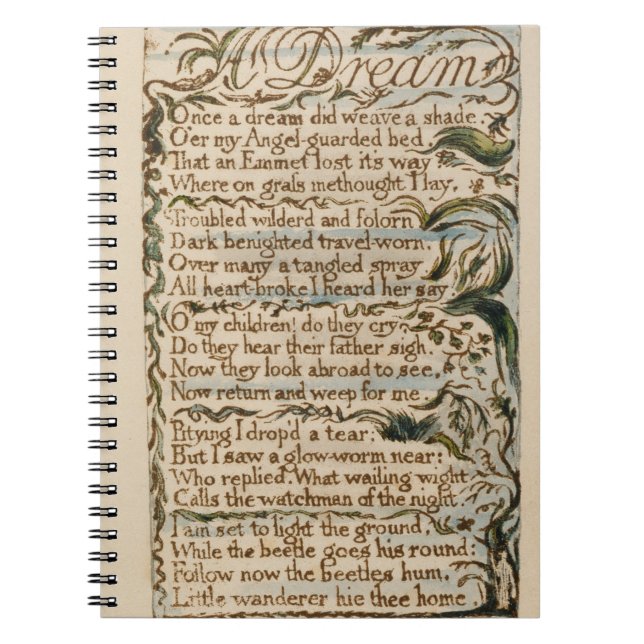 A Dream
Once a dream did weave a shade.
O'er my Angel-guarded bed.
That an Emmet lost its way
Where on grass methought I lay.
Troubled wilderd and folorn
Dark benighted travel-worn.
Over many a tangled spray
All heart-broke I heard her say.
O my children! do they cry
Do they hear their father sigh.
Now they look abroad to see.
Now return and weep for me.
Pitying I drop'd a tear:
But I saw a glow-worm near:
Who replied. What wailing wight
Calls the watchman of the night.
I am set to light the ground,
While the beetle goes his round:
Follow now the beetles hum,
Little wanderer hie thee home.